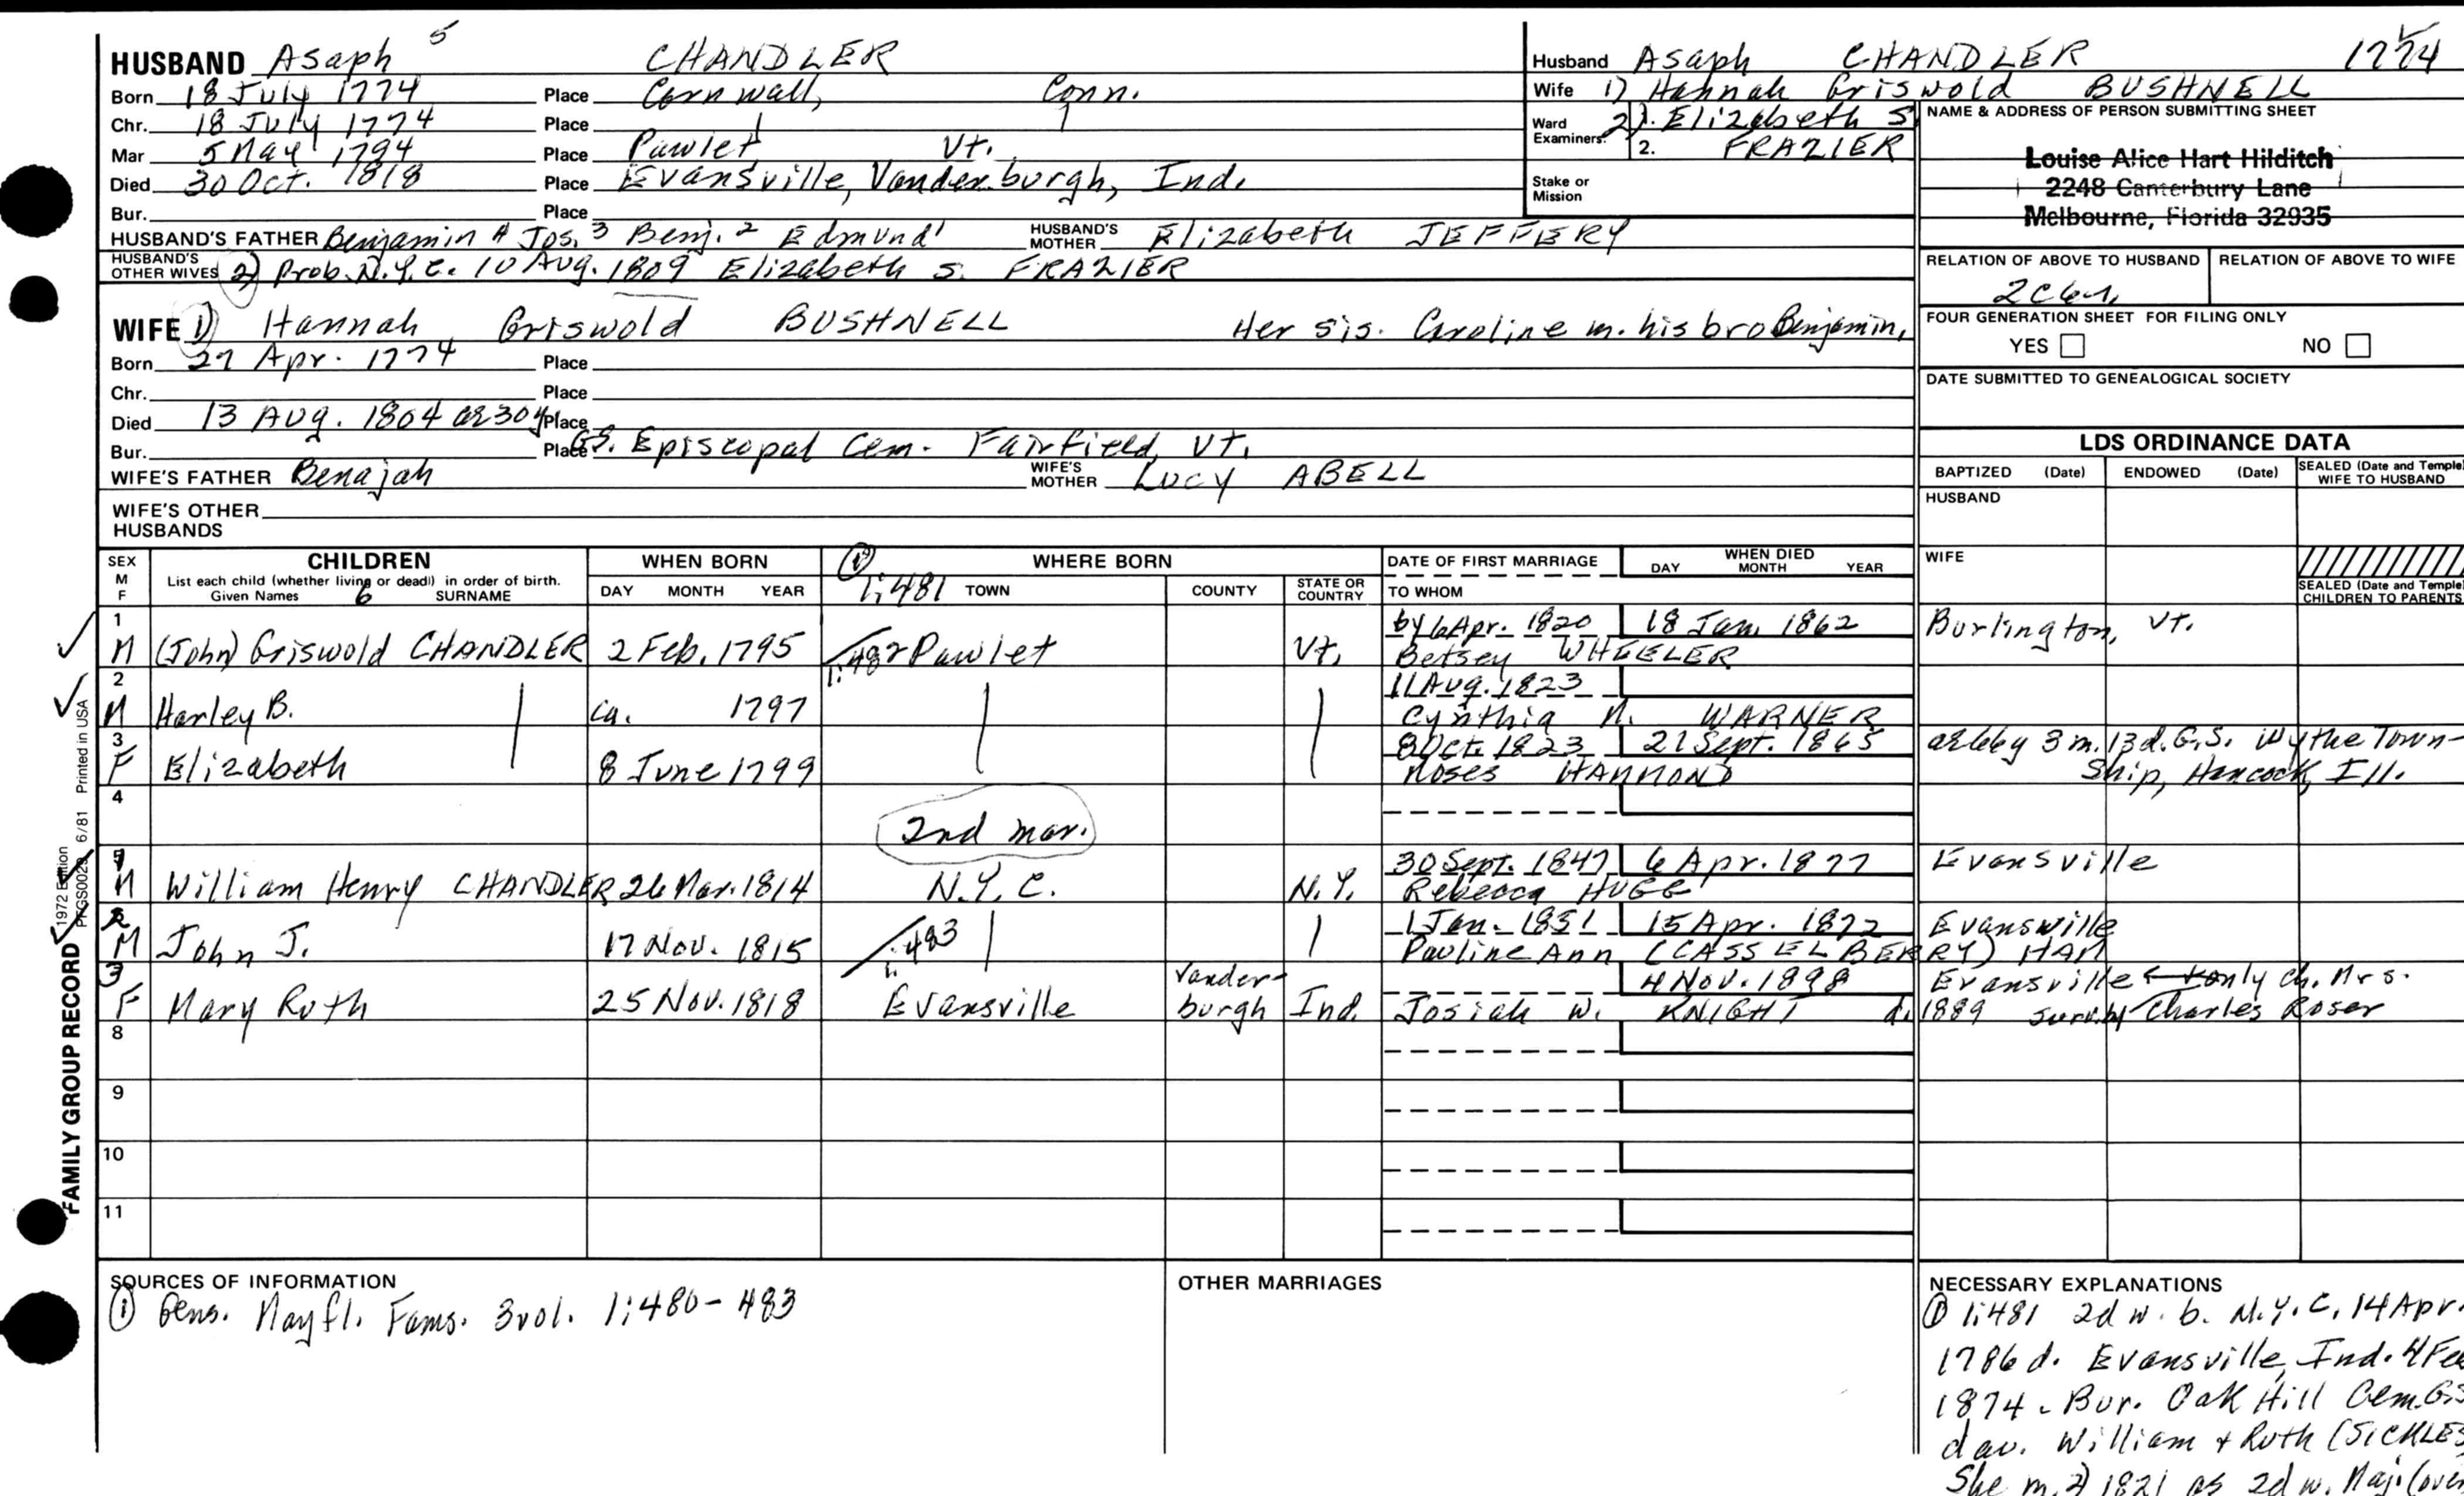 HUSBAND Asaph 5 CHANDLER
Born 18 July 1774 Place Cornwall, Conn.
Chr. 18 July 1774 Place
Mar 5 May 1794 Place Pawlet Vt.
Died 30 Oct. 1818 Place Evansville, Vanderburgh, Ind.
Bur. Place
HUSBAND'S FATHER Benjamin 4 Jos. 3 Benj. 2 Edmund 1 HUSBAND'S MOTHER Elizabeth JEFFERY
HUSBAND'S OTHER WIVES 2) Prob. N.Y.C. 10 Aug. 1809 Elizabeth S. FRAZIER
WIFE 1) Hannah Griswold BUSHNELL Her sis. Caroline m. his bro Benjamin,
Born 27 Apr. 1774 Place
Chr. Place
Died 13 Aug. 1804 ae 30y Place
Bur. Place G.S. Episcopal Cem. Fairfield, Vt.
WIFE'S FATHER Benajah WIFE'S MOTHER Lucy ABELL
WIFE'S OTHER HUSBANDS
Husband Asaph CHANDLER 1774
Wife 1) Hannah Griswold BUSHNELL
Ward Examiners: 2). Elizabeth S
2. FRAZIER
Stake or Mission
NAME & ADDRESS OF PERSON SUBMITTING SHEET
Louise Alice Hart Hilditch
2248 Canterbury Lane
Melbourne, Florida 32935
RELATION OF ABOVE TO HUSBAND RELATION OF ABOVE TO WIFE
FOUR GENERATION SHEET FOR FILING ONLY
YES NO
DATE SUBMITTED TO GENEALOGICAL SOCIETY
LDS ORDINANCE DATA
BAPTIZED (Date) ENDOWED (Date) SEALED (Date and Temple) WIFE TO HUSBAND
HUSBAND
WIFE
SEALED (Date and Temple) CHILDREN TO PARENTS
SEX M F
CHILDREN
List each child (whether living or dead) in order of birth.
Given Names 6 SURNAME
WHEN BORN
DAY MONTH YEAR
① WHERE BORN
1:481 TOWN COUNTY STATE OR COUNTRY
DATE OF FIRST MARRIAGE
TO WHOM
WHEN DIED
DAY MONTH YEAR
1 by 6 Apr. 1820 18 Jan. 1862 Burlington, Vt.
M (John) Griswold CHANDLER 2 Feb. 1795 1:482 Pawlet Vt. Betsey WHEELER
2 11 Aug. 1823
M Harley B. ca. 1797 Cynthia M. WARNER
3 8 Oct. 1823 21 Sept. 1865 ae 66y 3m. 13d. G.S. Wythe Town-
F Elizabeth 8 June 1799 Moses HAMMOND ship, Hancock, Ill.
4
2nd mar.
1 30 Sept. 1847 6 Apr. 1877 Evansville
M William Henry CHANDLER 26 Mar. 1814 N.Y.C. N.Y. Rebecca HUGG
2 1 Jan. 1851 15 Apr. 1872 Evansville
M John J. 17 Nov. 1815 1:483 Pauline Ann (CASSELBERRY)
3 Vander- 4 Nov. 1898 Evansville only ch. Mrs.
F Mary Ruth 25 Nov. 1818 Evansville burgh Ind. Josiah W. KNIGHT d. 1889 surv. by Charles Roser
8
9
10
11
FAMILY GROUP RECORD
1972 Edition
PFGS0029 6/81 Printed in USA
SOURCES OF INFORMATION
① Gens. Mayfl. Fams. 3vol. 1:480-483
OTHER MARRIAGES
NECESSARY EXPLANATIONS
① 1:481 2d w. b. N.Y.C. 14 Apr.
1786 d. Evansville, Ind. 4
1874. Bur. Oak Hill Cem.
dau. William + Ruth (SICKLES
She m. 2) 1821 as 2d w. Maj. (over